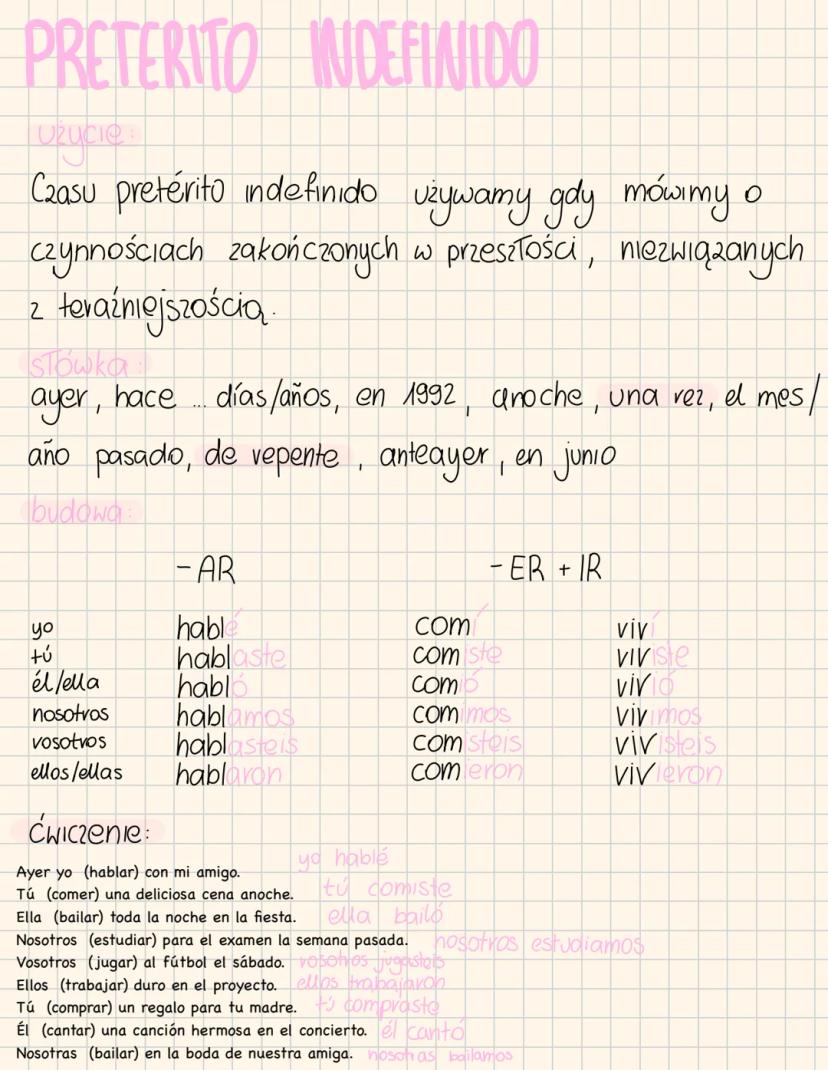 PRETERITO INDEFINIDO
użycie:
Czasu pretérito indefinido używamy gdy mówimy o
czynnościach zakończonych w przeszłości, niezwiązanych
z teraźniejszością.
słówka:
ayer, hace ... días/años, en 1992, anoche, una vez, el mes/
año pasado, de repente, anteayer, en junio
budowa:
-AR -ER + IR
yo hablé comí viví
tú hablaste comiste viviste
él/ella habló comió vivió
nosotros hablamos comimos vivimos
vosotros hablasteis comisteis vivisteis
ellos/ellas hablaron comieron vivieron
Ćwiczenie:
Ayer yo (hablar) con mi amigo. yo hablé
Tú (comer) una deliciosa cena anoche. tú comiste
Ella (bailar) toda la noche en la fiesta. ella bailó
Nosotros (estudiar) para el examen la semana pasada. nosotros estudiamos
Vosotros (jugar) al fútbol el sábado. vosotros jugasteis
Ellos (trabajar) duro en el proyecto. ellos trabajaron
Tú (comprar) un regalo para tu madre. tú compraste
Él (cantar) una canción hermosa en el concierto. él cantó
Nosotras (bailar) en la boda de nuestra amiga. nosotras bailamos